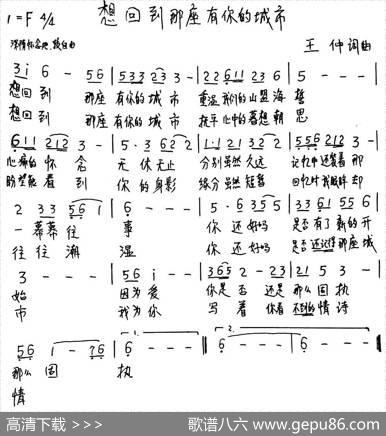 想回到那座有你的城市
1=F 4/4
深情怀念地、散白由
王 仲 词曲
3 i 6 - 5 6 | 5 3 3 2 3 3 - | 2 2 6 1 1 2 3 6 | 5 - - - |
想回到 那座 有你的城市 重温我们的山盟海誓
想回到 那座 有你的城市 抚平心中的暮想朝思
6 1 1 2 1 2 3 - | 5 · 3 6 2 2 | 1 · 1 2 1 3 2 2 | 5 5 6 2 1 2 3 - |
心痛的怀念 无休无止 分别虽然久远 记忆中还装着那
盼望能看到 你的身影 缘分虽然短暂 回忆时我眼眸却
2 3 3 5 5 6 1 | 6 - - - | 5 · 6 3 5 5 | 3 3 6 1 5 5 6 |
一幕幕往事 你还好吗 是否有了新的开
往往潮湿 你还好吗 是否还记得那座城
3 - - - | 5 6 i - - | 3 6 5 2 - 2 3 | 2 1 5 3 - |
始 因为爱 你是否还是那么固执
市 我为你 写着你看不到的情诗
5 6 i - 7 6 | 6 - - - | 6 - - - | 6 - - - ‖
1.
2.
那么固执
情
高清下载 >>> 歌谱八六 www.gepu86.com